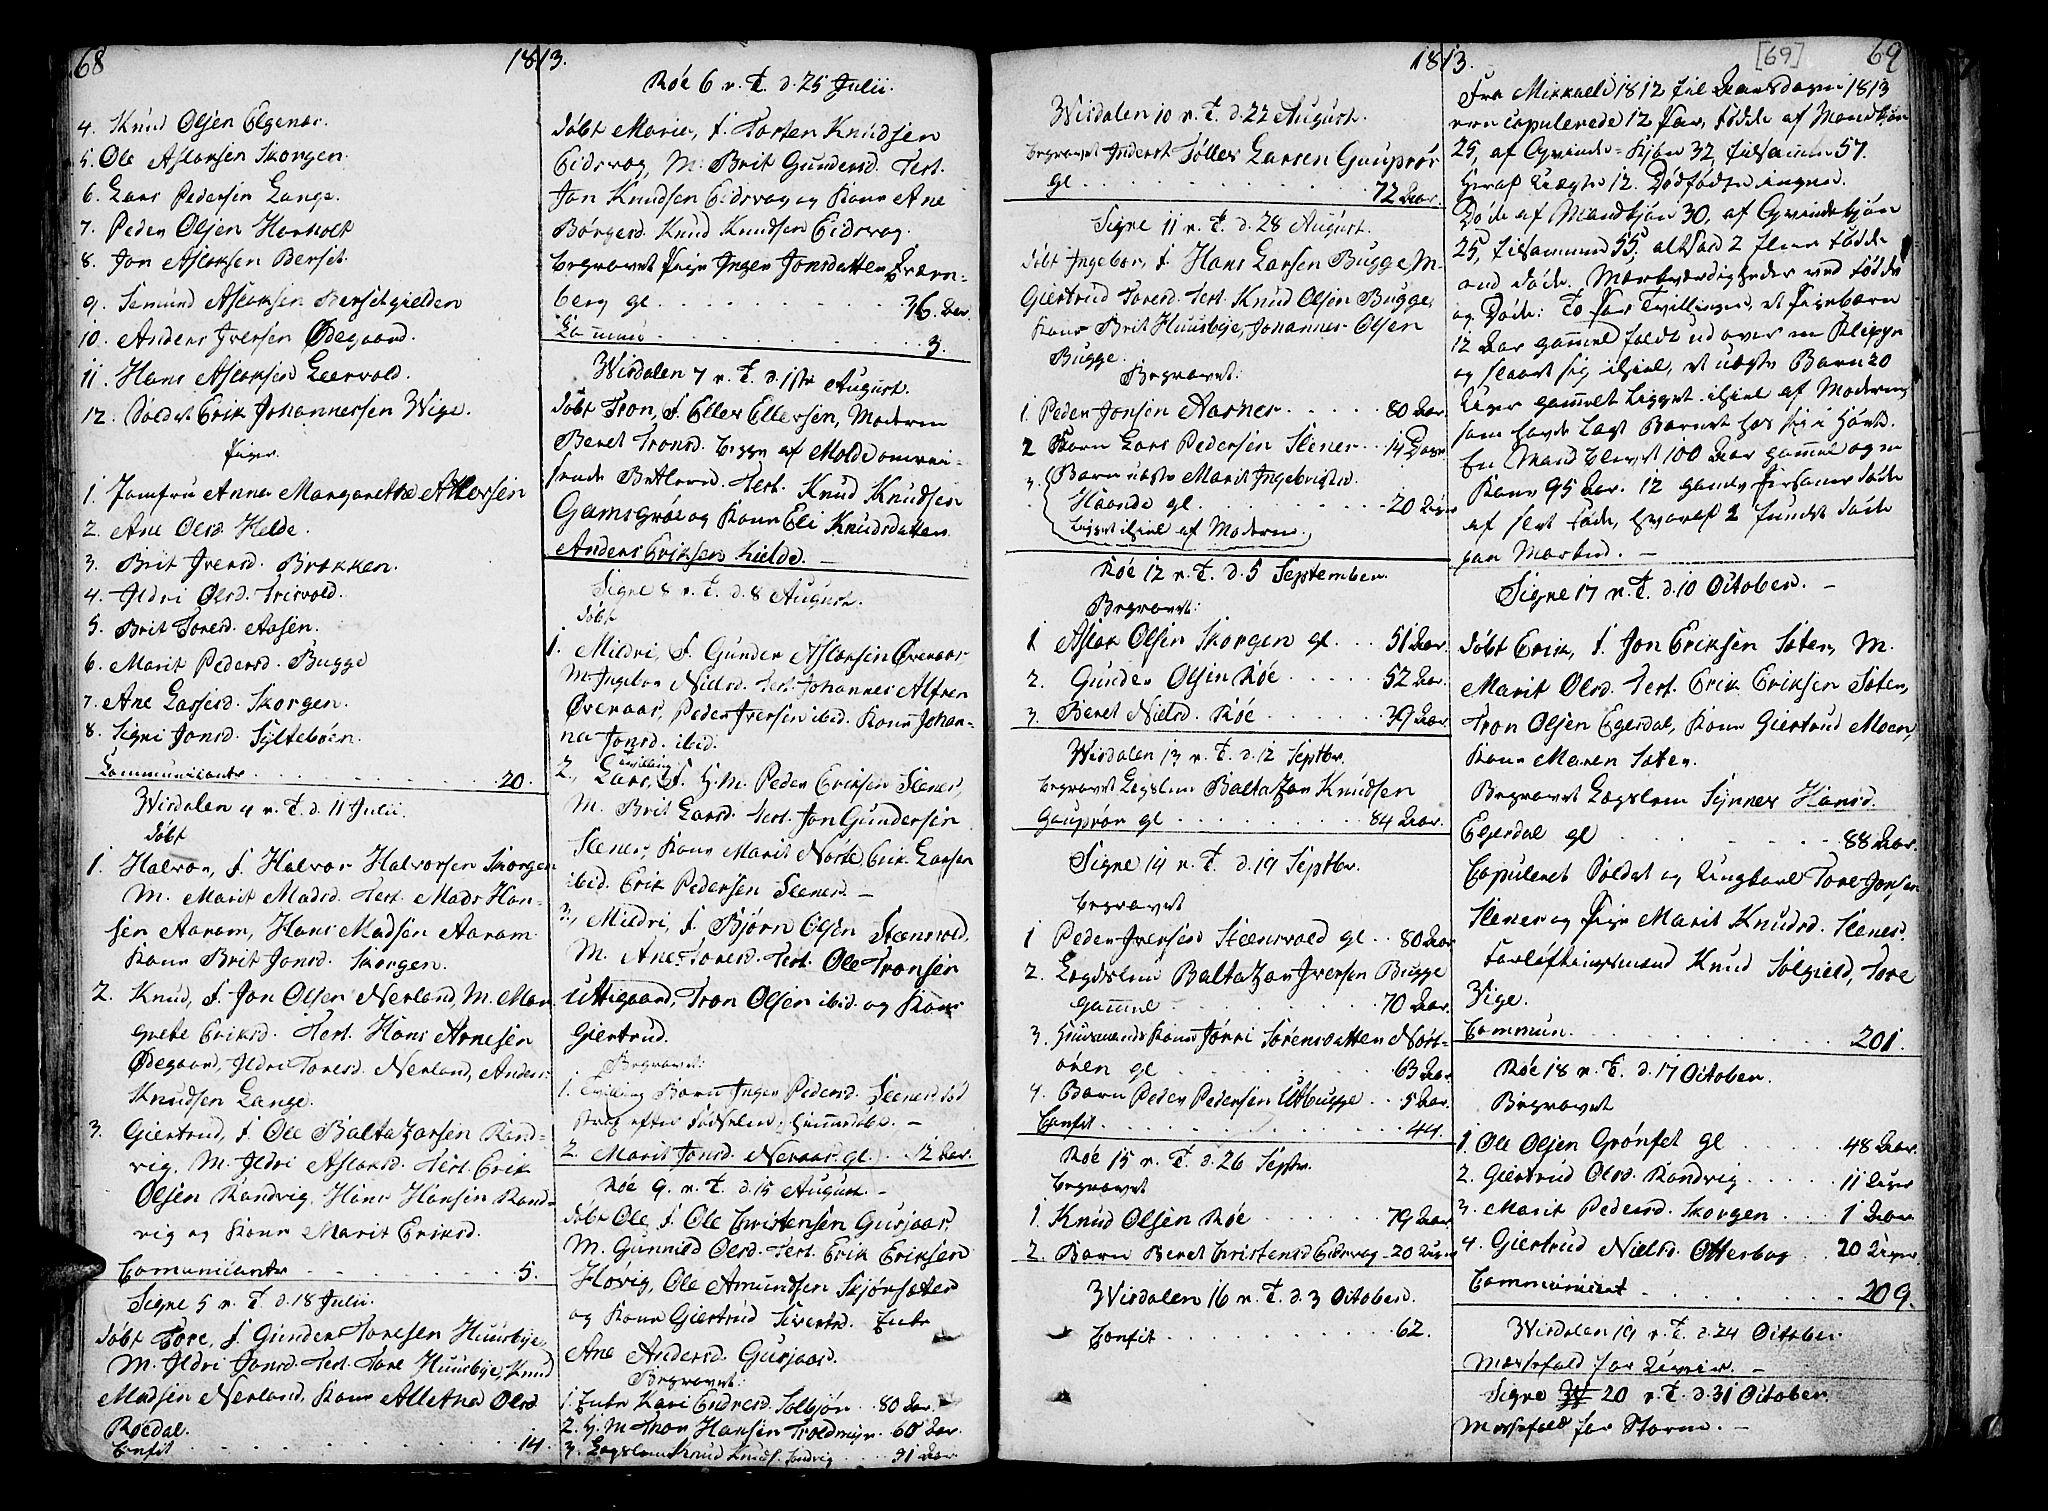 68
1813.
4. Knud Olsen Elgenæs.
5. Ole Aslaksen Skorgen.
6. Lars Pedersen Lange.
7. Peder Olsen Horholt
8. Jon Aslaksen Berset.
9. Semund Aslaksen Bersetgielden
10. Anders Iversen Ødegaard.
11. Hans Aslaksen Leervold.
12. Soldat Erik Johannessen Wige.
Piger.
1. Jomfru Anna Margarethe Allersen
2. Ane Olsd. Helde.
3. Brit Iversd. Brakken.
4. Ildri Olsd. Trisvold.
5. Brit Toresd. Aasen.
6. Marit Pedersd. Bugge
7. Ane Larsesd. Skorgen.
8. Signi Jonsd. Syltebøen.
Communicanter 20.
Wisdalen 4 p. T. d. 11 Julii.
Døbt
1. Halvor, F. Halvor Halvorsen Skorgen
M. Marit Madsd. Test. Mads Han-
sen Aaram, Hans Madsen Aaram
Kone Brit Jonsd. Skorgen.
2. Knud, F. Jon Olsen Nerland, M. Mar
grete Eriksd. Test. Hans Arnesen
Ødegaard, Ildri Toresd. Nerland, Anders
Knudsen Lange.
3. Giertrud, F. Ole Baltazarsen Rand-
vig, M. Ildri Aslaksd. Test. Erik
Olsen Randvig, Hans Hansen Rand-
vig og Kone Marit Eriksd.
Communicanter 5.
Signe 5 p. T. d. 18 Julii.
Døbt Tore, F. Gunder Toresen Huusbye,
M. Ildri Jonsd. Test. Tore Huusbye, Knud
Madsen Nerland, Kone Alletha Olsd
Roedal.
Confit 14.
Røe 6 p. T. d. 25 Julii.
Døbt Marie, F. Torsten Knudsen
Eidsvog, M. Brit Gundersd. Test.
Jon Knudsen Eidsvog og Kone Ane
Børgesd. Knud Knudsen Eidsvog.
Begravet Pige Inger Jonsdatter Tværn-
berg gl. 36. Aar.
Commun 3.
Wisdalen 7 p. T. d. 1ste August.
Døbt Tron, F. Eller Ellersen, Moderen
Beret Tronsd. begge af Molde omrei-
sende Betlere. Test. Knud Knudsen
Gamsgrøe og Kone Eli Knudsdatter
Anders Eriksen Hielde.
Signe 8 p. T. d. 8 August.
Døbt
1. Mildri, F. Gunder Aslaksen Øveraas
M. Ingebor Nielsd. Test. Johannes Alfsen
Øveraas, Peder Iversen ibid. Kone Johan-
na Jonsd. ibid.
2. Tvilling Lars, F. H. M. Peder Eriksen Slenes,
M. Brit Larsd. Test. Jon Gundersen
Slenes, Kone Marit Nørste Erik Larsen
ibid. Erik Pedersen Slenes.
3. Mildri, F. Bjørn Olsen Steensvold,
M. Ane Toresd. Test. Ole Tronsen
Uttigaard, Tron Olsen ibid. og Kone
Giertrud.
Begravet:
1. Tvilling Barn Inger Pedersd. Slenes død
strax efter Fødselen, hjemmedøbt.
2. Marit Jonsd. Neraas gl. 12 Aar.
Røe 9. p. T. d. 15 August.
Døbt Ole, F. Ole Christensen Gusjaas,
M. Gunnild Olsd. Test. Erik Eriksen
Høvig, Ole Amundsen Skjørsæter
og Kone Giertrud Sivertsd. Enke
Ane Andersd. Gusjaas.
Begravet:
1. Enke Kari Endresd. Solbjør 80 Aar.
2. H. M. Thor Hansen Troldmyr 60 Aar.
3. Lægslem Knud Knuds. Sandvig 91 Aar
1813.
[69] 69
Wisdalen 10 p. T. d. 22 August.
Begravet Inderst Tølles Larsen Gauprør
gl. 72 Aar.
Signe 11 p. T. d. 28 August.
Døbt Ingebor, F. Hans Larsen Bugge, M.
Giertrud Toresd. Test. Knud Olsen Bugge,
Kone Brit Huusbye, Johannes Olsen
Bugge.
Begravet:
1. Peder Jonsen Aarnes 80 Aar.
2 Barn Lars Pedersen Slenes 14 Dage
3. Barn uægte Marit Ingebrigtsd.
Haande gl. 20 Uger
ligget ihiel af Moderen.
Røe 12 p. T. d. 5 September.
Begravet:
1 Aslak Olsen Skorgen gl. 51 Aar.
2. Gunder Olsen Røe 52 Aar.
3. Beret Nielsd. Røe 39 Aar.
Wisdalen 13 p. T. d. 12 Septbr.
Begravet Lægslem Baltazar Knudsen
Gauprør gl 84 Aar.
Signe 14 p. T. d. 19 Septbr.
Begravet
1 Peder Iversen Steensvold gl. 80 Aar
2. Lægdslem Baltazar Iversen Bugge
gammel 70 Aar.
3. Huusmands Kone Jørri Sørensdatter Nørst-
øren gl 63 Aar
4. Barn Peder Pedersen Utbugge 5 Aar.
Confit. 44.
Røe 15 p. T. d. 26 Septr.
Begravet
1. Knud Olsen Røe 79 Aar
2. Barn Beret Christensd Eidsvog 20 Uger
Wisdalen 16 p. T. d. 3 October.
Confit 62.
Fra Mikkaeli 1812 til Aarsdagen 1813
ere Copulerede 12 Par, Fødde af Mandkjøn
25, af Qvinde-Kjøn 32, tilsamen 57.
Heraf Uægte 12. Dødfødte ingen.
Døde af Mandkjøn 30, af Qvindekjøn
25, tilsamen 55, altsaa 2 flere Fødde
end døde. Mærkværdigheder ved Fødde
og Døde: To Par Tvillinger, et Pigebarn
12 Aar gammel faldt ud over en Klippe
og slaaet sig ihiel, et uægte Barn 20
Uger gammelt ligget ihiel af Moderen
som havde lagt Barnet hos sig i Høet.
En Mand blevet 100 Aar gammel og en
Kone 95 Aar. 12 gamle Personer døde
af slet Føde, hvoraf 2 fundet døde
paa Marken.
Signe 17 p. T. d. 10 October.
Døbt Erik, F. Jon Eriksen Sæter, M.
Marit Olsd. Test. Erik Eriksen Sæter,
Tron Olsen Egesdal, Kone Giertrud Moen,
Kone Maren Sæter.
Begravet Lægslem Synnev Hansd.
Egesdal gl 88 Aar.
Copuleret Soldat og Ungkarl Tore Jonsen
Slenes og Pige Marit Knudsd. Slenes.
Forløftningsmænd Knud Solgield, Tore
Wige.
Commun. 201.
Røe 18 p. T. d. 17 October.
Begravet
1. Ole Olsen Grønset gl 48 Aar.
2. Giertrud Olsd. Randvig 11 Uger
3. Marit Pedersd. Skorgen 1 Aar
4. Giertrud Nielsd. Otterbog 20 Uger
Communicant 209.
Wisdalen 19 p. T. d. 24 October.
Messefald for Uveir.
Signe 20 p. T. d. 31 October.
Messefald for Storm.